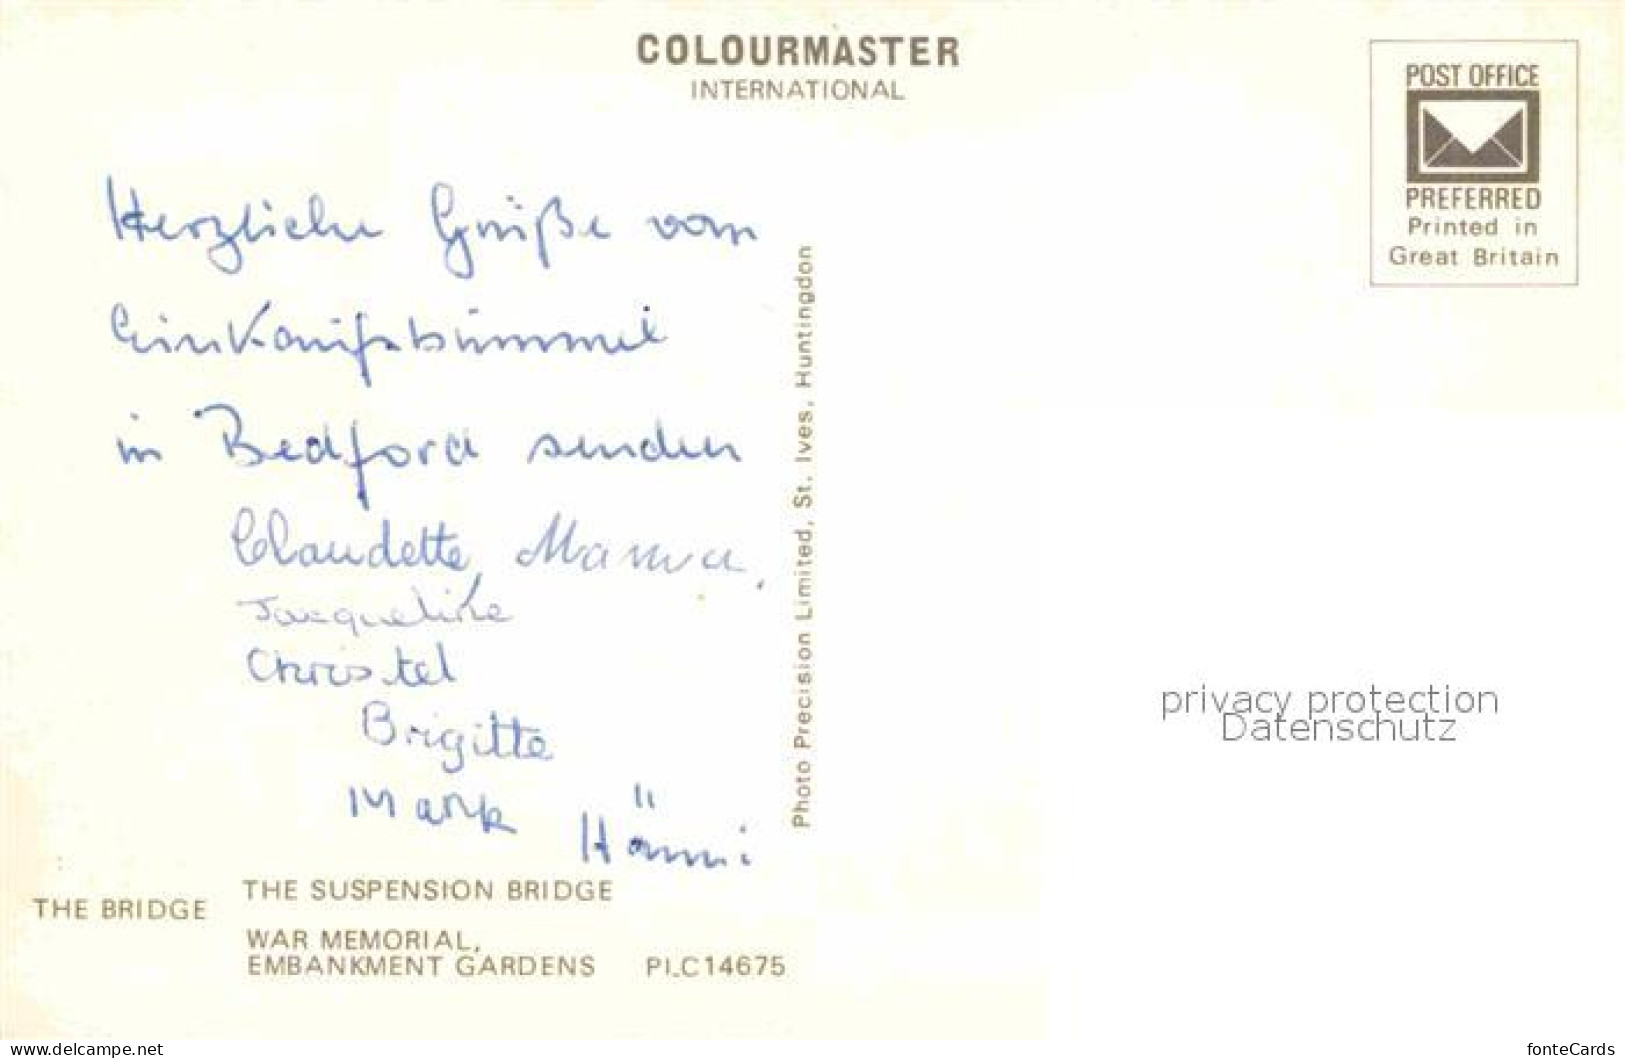 COLOURMASTER
INTERNATIONAL
POST OFFICE
PREFERRED
Printed in
Great Britain
Herzliche Grüße vom
Einkaufsbummel
in Bedford senden
Claudette,
Jacqueline
Christel
Brigitte
Mark Hänni
Photo Precision Limited, St. Ives, Huntingdon
privacy protection
Datenschutz
THE BRIDGE
THE SUSPENSION BRIDGE
WAR MEMORIAL,
EMBANKMENT GARDENS PLC14675
www.delcampe.net
fonteCards